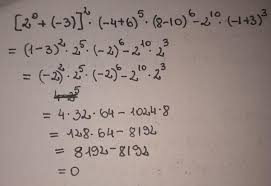 [2⁰ + (-3)]² · (-4+6)⁵ · (8-10)⁶ - 2¹⁰ · (-1+3)³
= (1-3)² · 2⁵ · (-2)⁶ - 2¹⁰ · 2³
= (-2)² · 2⁵ · (-2)⁶ - 2¹⁰ · 2³
= 4 · 32 · 64 - 1024 · 8
= 128 · 64 - 8192
= 8192 - 8192
= 0